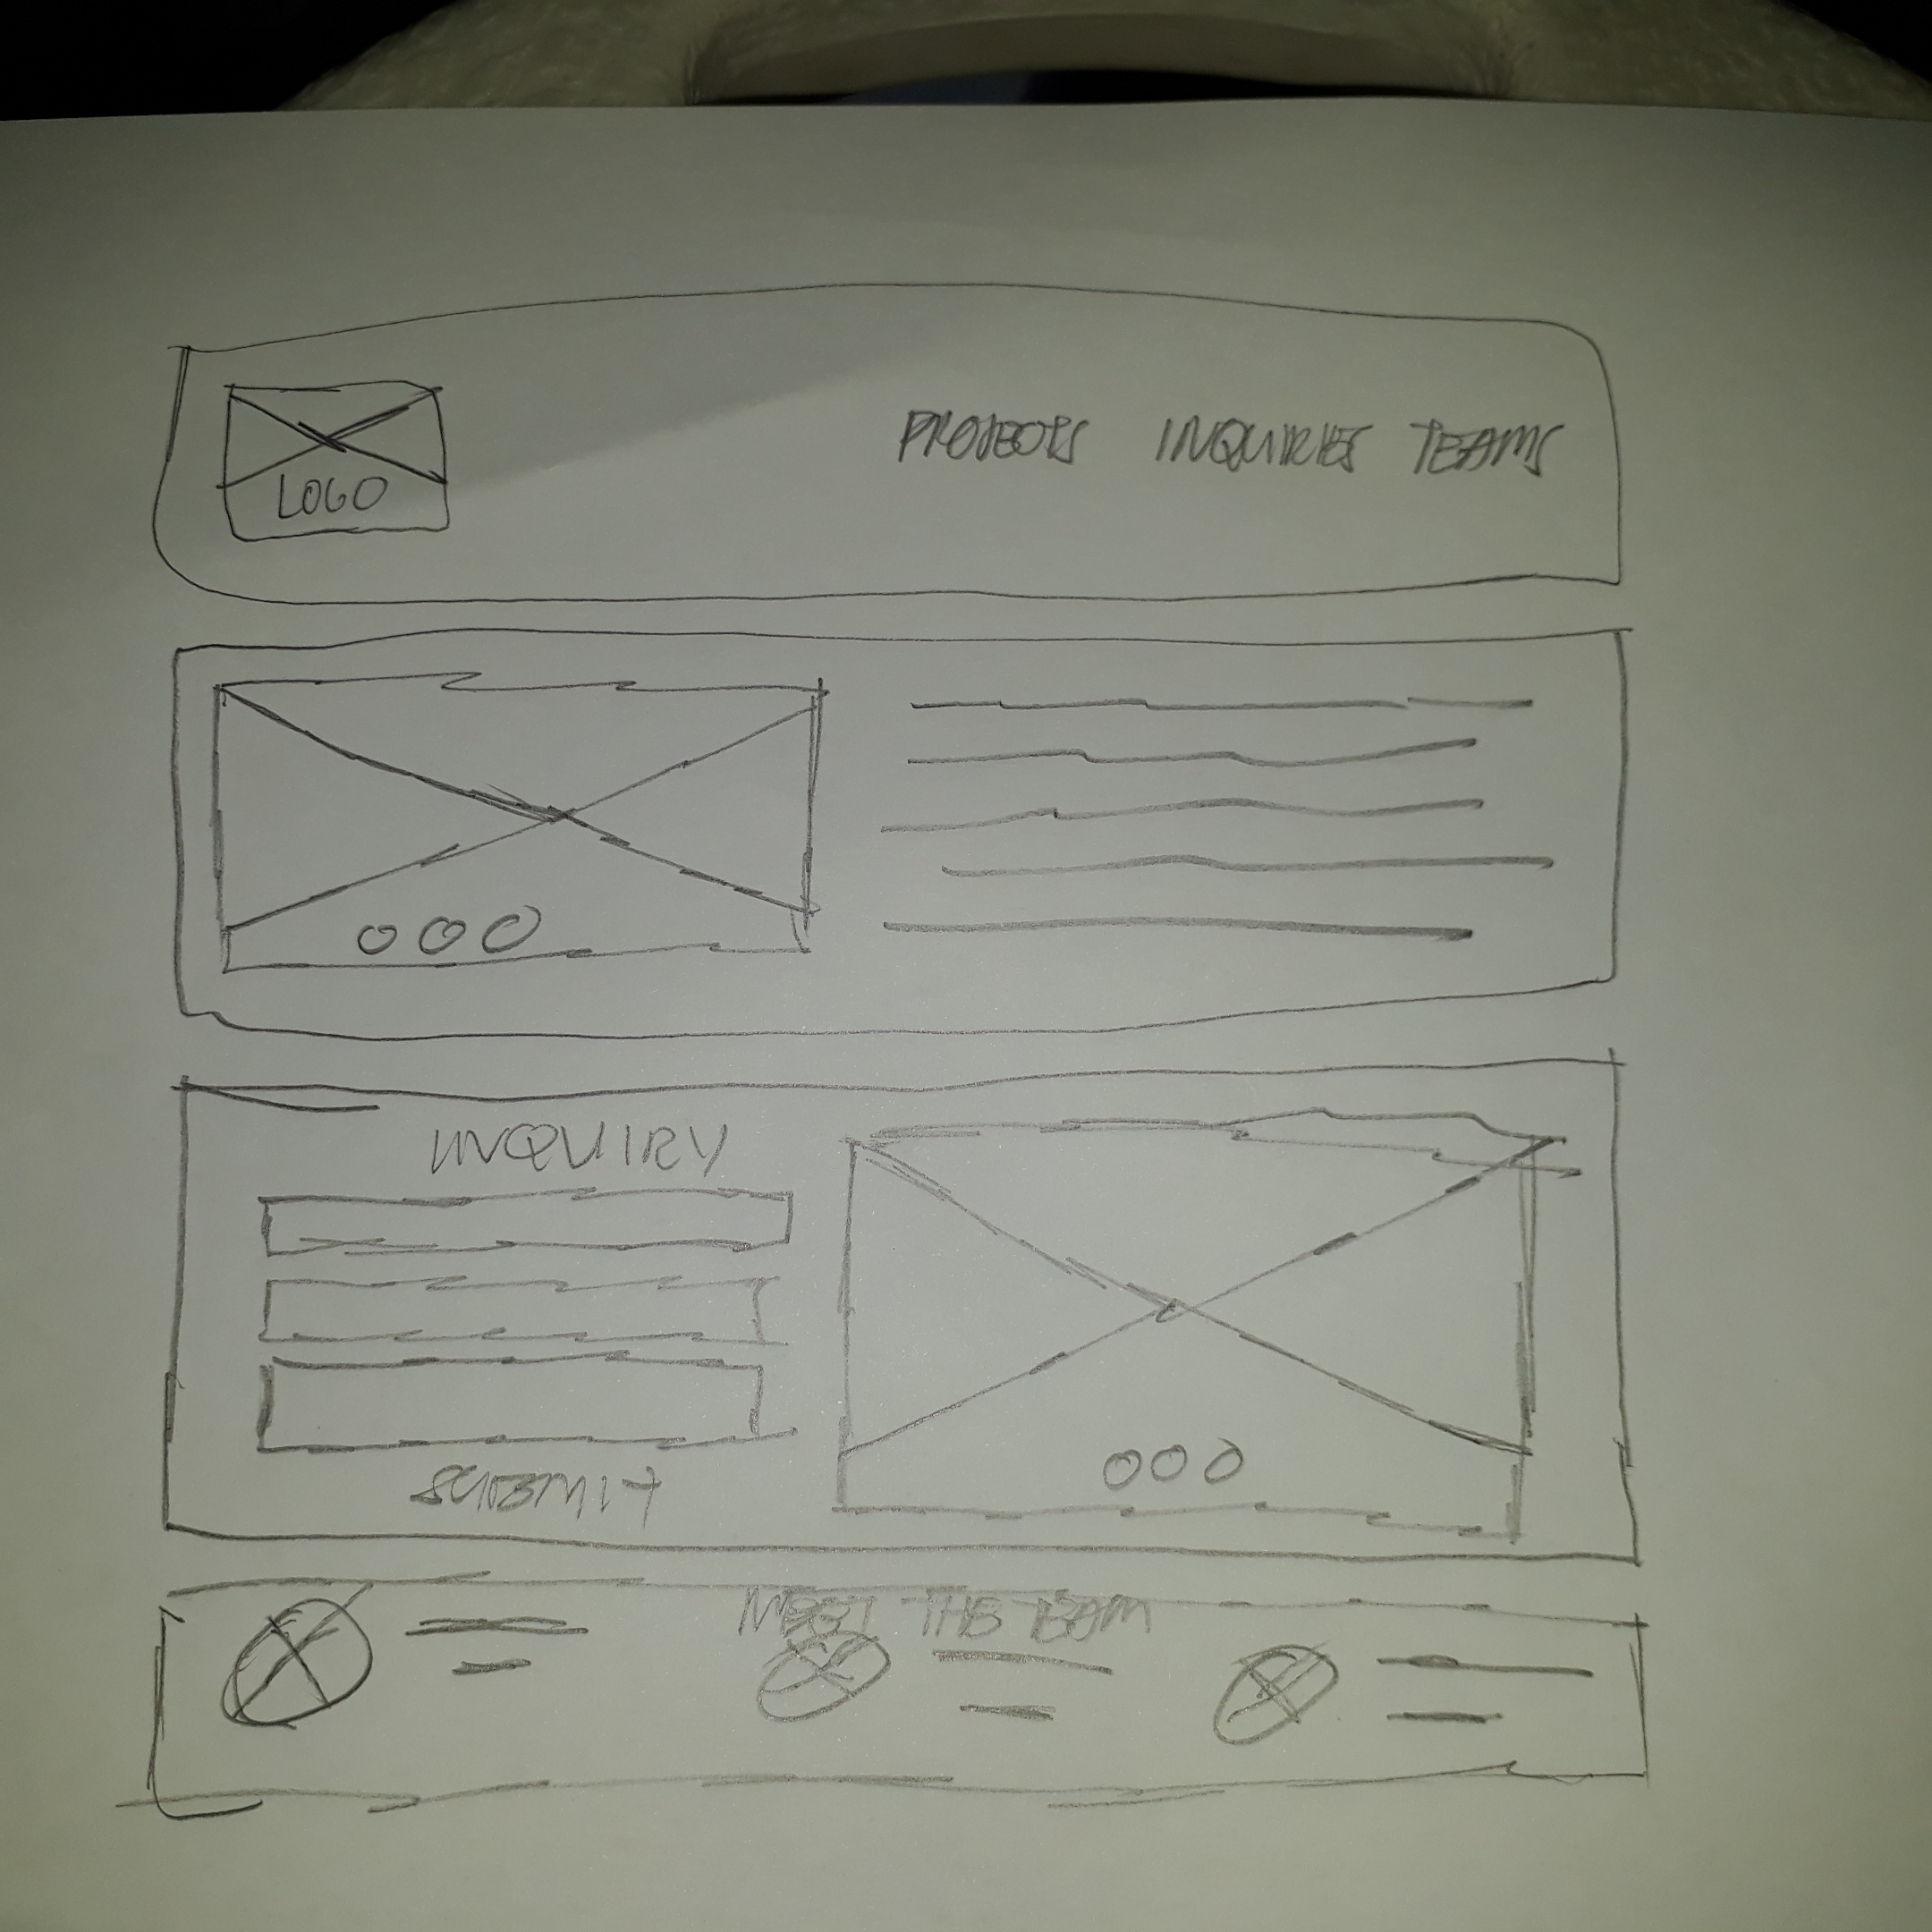 PROJECTS INQUIRIES TEAMS
LOGO
INQUIRY
SUBMIT
MEET THE TEAM